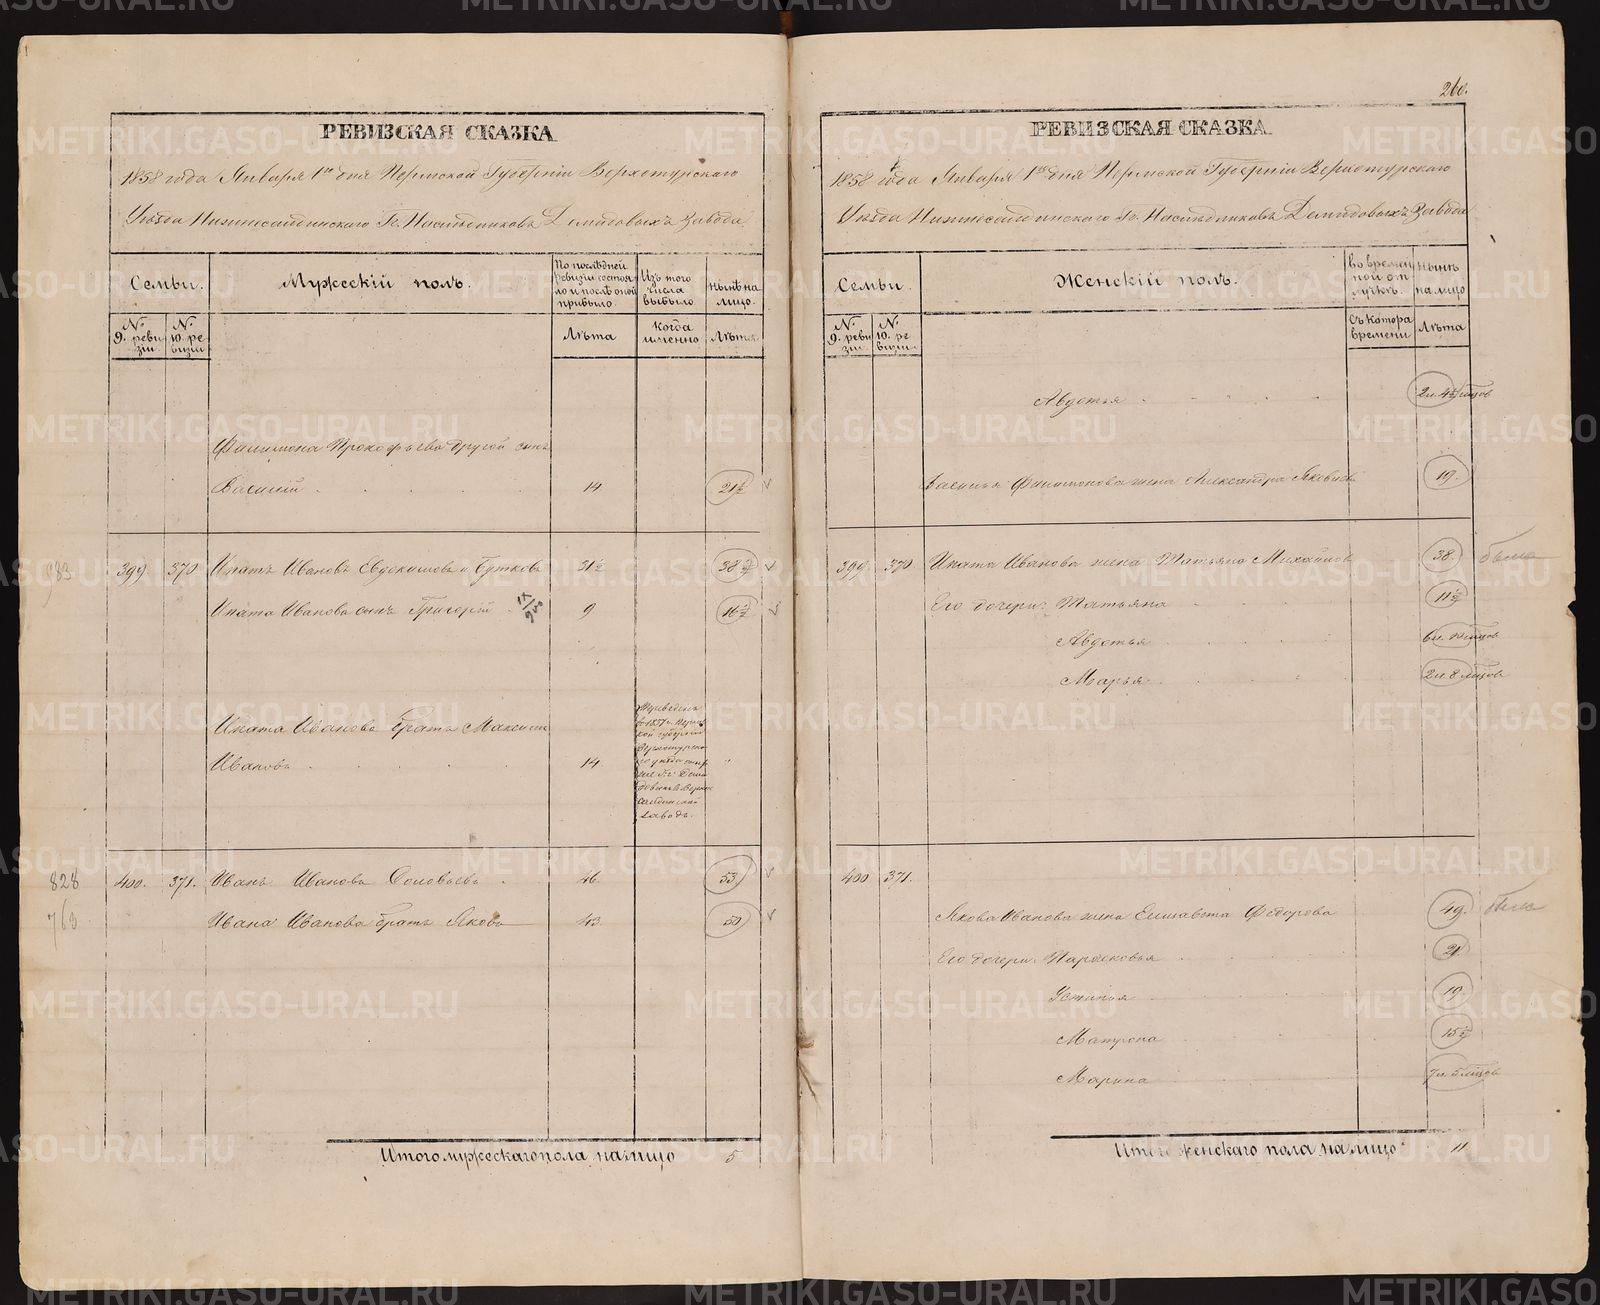 260.
РЕВИЗСКАЯ СКАЗКА
1858 года Января 1го дня Пермской Губерніи Верхотурскаго
Уѣзда Нижнесалдинскаго Гг. Наслѣдниковъ Демидовыхъ Завода
Семьи.
Мужескій полъ.
По послѣдней ревизіи состояло и послѣ оной прибыло
Изъ того числа выбыло
Нынѣ на лицо.
№ 9. ревизіи.
№ 10. ревизіи
Лѣта
когда именно
Лѣта
Филимона Прокофьева другой сынъ
Василій 14 21½
983 399. 370 Ипатъ Ивановъ Евдокимовъ и Бутковъ 31½ 38½
Ипата Иванова сынъ Григорій 9 16½
Ипата Иванова братъ Максимъ
Ивановъ 14.
заводъ.
828 400. 371. Иванъ Ивановъ Соловьевъ 46. 53.
763 Ивана Иванова братъ Яковъ 43. 50
Итого мужескаго пола на лицо 5
РЕВИЗСКАЯ СКАЗКА.
1858 года Января 1го дня Пермской Губерніи Верхотурскаго
Уѣзда Нижнесалдинскаго Гг. Наслѣдниковъ Демидовыхъ Завода
Семьи.
Женскій полъ.
во временной отлучкѣ.
Нынѣ на лицо
№ 9. ревизіи.
№ 10. ревизіи.
Съ котора времени
Лѣта
Авдотья
Василья Филимонова жена Александра Яковлев 19.
399. 370 Ипата Иванова жена Татьяна Михайлов 38.
Его дочери: Татьяна 11½
Авдотья
Марья 2л. 8 мцов
400 371.
Якова Иванова жена Елисавета Федорова 49.
Его дочери: Парасковья 21
Устинья 19.
Матрона 15½
Марина 7л. 5 мцов
Итого женскаго пола на лицо 11
METRIKI.GASO-URAL.RU